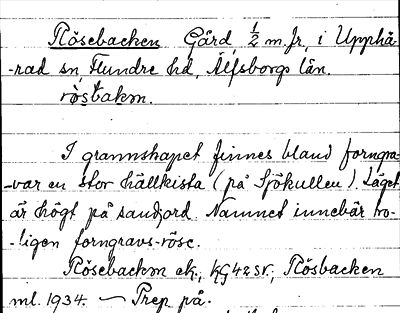 Rösebacken Gård, ½ m. fr. i Upphä-
-rad sn, Flundre hd, Älfsborgs län.
rösbakm.
I grannskapet finnes bland forngra-
-var en stor hällkista (på Sjökullen). Läget
är högt på sandjord. Namnet innebär tro-
-ligen forngravs-röse.
Rösebackm ek., Rösbacken
ml. 1934. — Prep på.